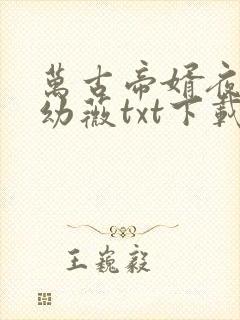 萬古帝婿夜
幼薇txt下載
王巍毅